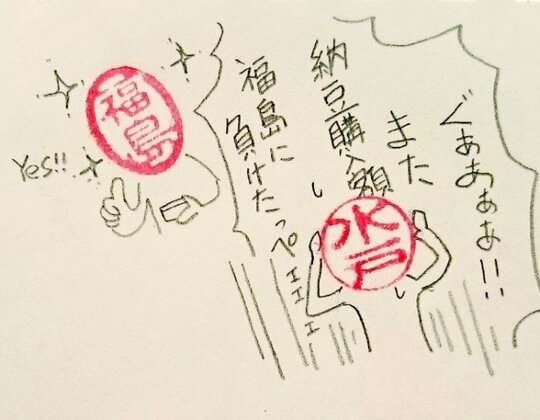 ぐぁあぁぁ!!
また
納豆購入額
福島に
負けたっぺェェェ
水戸
福島
Yes!!